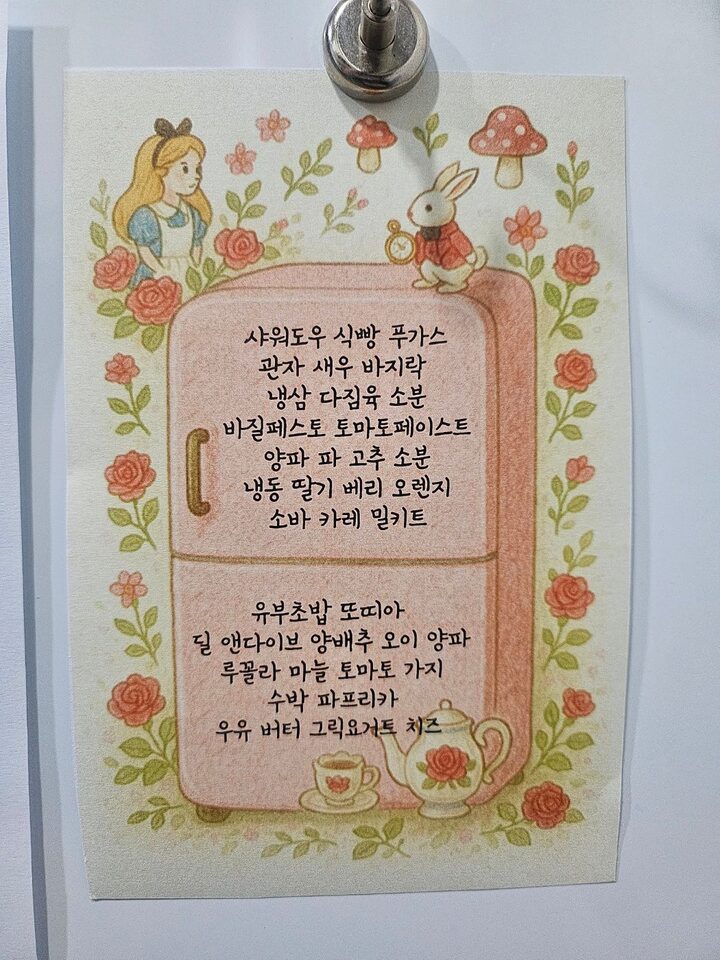 샤워도우 식빵 푸가스
관자 새우 바지락
냉삼 다짐육 소분
바질페스토 토마토페이스트
양파 파 고추 소분
냉동 딸기 베리 오렌지
소바 카레 밀키트
유부초밥 또띠아
딜 앤다이브 양배추 오이 양파
루꼴라 마늘 토마토 가지
수박 파프리카
우유 버터 그릭요거트 치즈